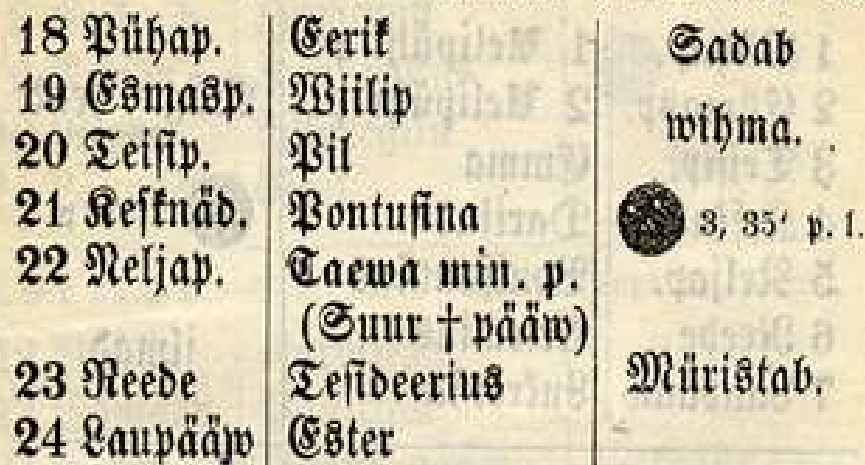 18 Pühap. Eerik Sadab
19 Esmasp. Wiilip wihma.
20 Teisip. Pil
21 Kesknäd. Pontusina 3, 35' p. l.
22 Neljap. Taewa min. p.
(Suur † pääw)
23 Reede Tesideerius Müristab.
24 Laupääw Ester